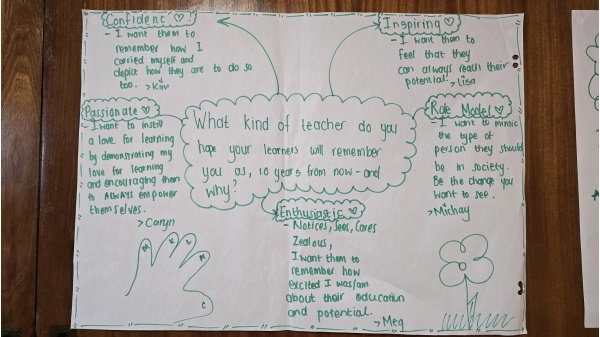 Confident ♡!
- I want them to
remember how I
carried myself and
depict how they are to do so
too. >Kim
Inspiring ♡
- I want them to
feel that they
can always reach their
potential. >Lisa
Passionate ♡
- I want to instill
a love for learning
by demonstrating my
love for learning
and encouraging them
to ALWAYS empower
themselves.
>Caryn
What kind of teacher do you
hope your learners will remember
you as, 10 years from now - and
why?
Role Model ♡
- I want to mimic
the type of
person they should
be in society.
Be the change you
want to see.
>Michay
Enthusiastic ♡
- Notices, Sees, Cares
Zealous,
I want them to
remember how
excited I was/am
about their education
and potential.
>Meg
M K L M
C